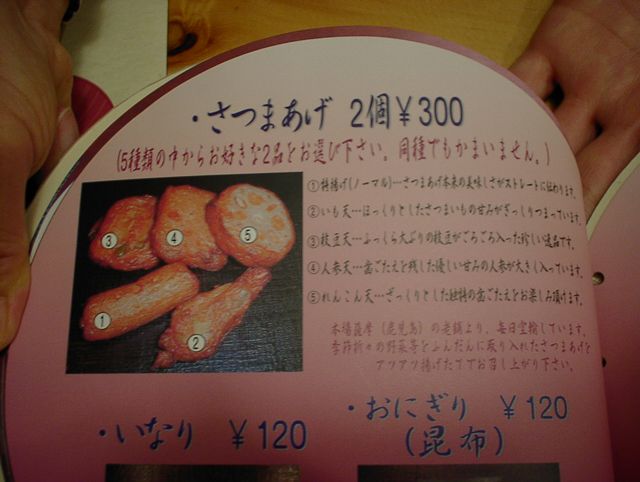 ・さつまあげ 2個￥300
(5種類の中からお好きな2品をお選び下さい。同種でもかまいません。)
①棒揚げ(ノーマル)…さつまあげ本来の美味しさがストレートに伝わります。
②いも天…ほっくりとしたさつまいもの甘みがぎっくりつまっています。
③枝豆天…ふっくら大ぶりの枝豆がごろごろ入った珍しい逸品です。
④人参天…歯ごたえを残した優しい甘みの人参が大きく入っています。
⑤れんこん天…ざっくりとした独特の歯ごたえをお楽しみ頂けます。
本場薩摩(鹿児島)の老舗より、毎日空輸しています。
季節折々の野菜等をふんだんに取り入れたさつまあげを
アツアツ揚げたてでお召し上がり下さい。
③ ④ ⑤
①
②
・いなり ￥120
・おにぎり ￥120
(昆布)